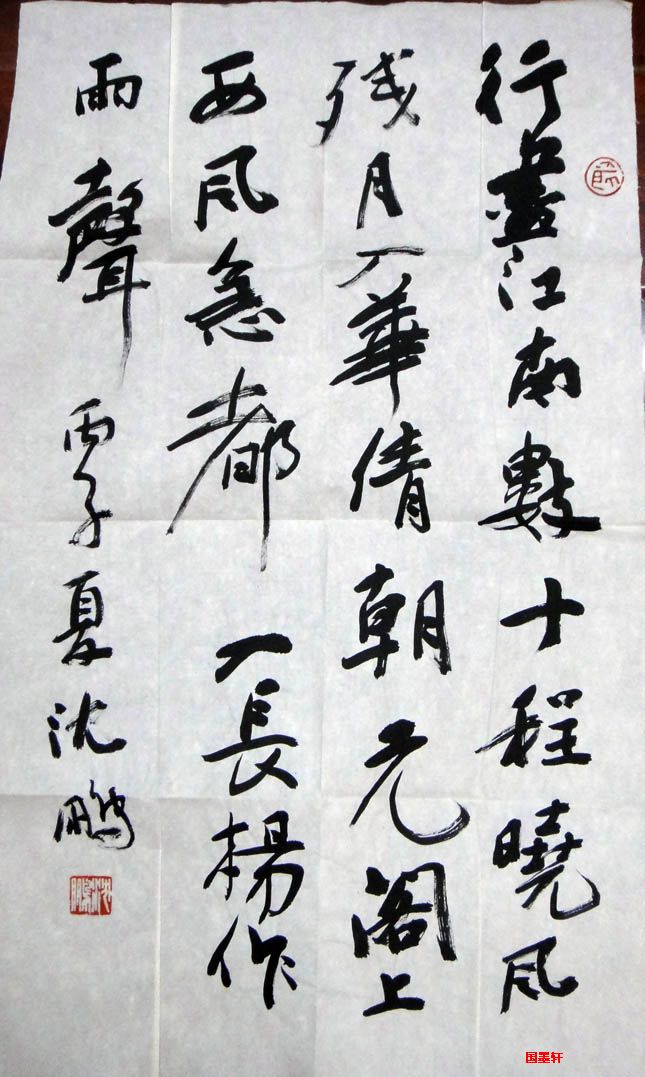 行盡江南數十程曉风
残月入華倩朝元阁上
西风急都入長楊作
雨聲 丙子夏沈鹏
国墨轩